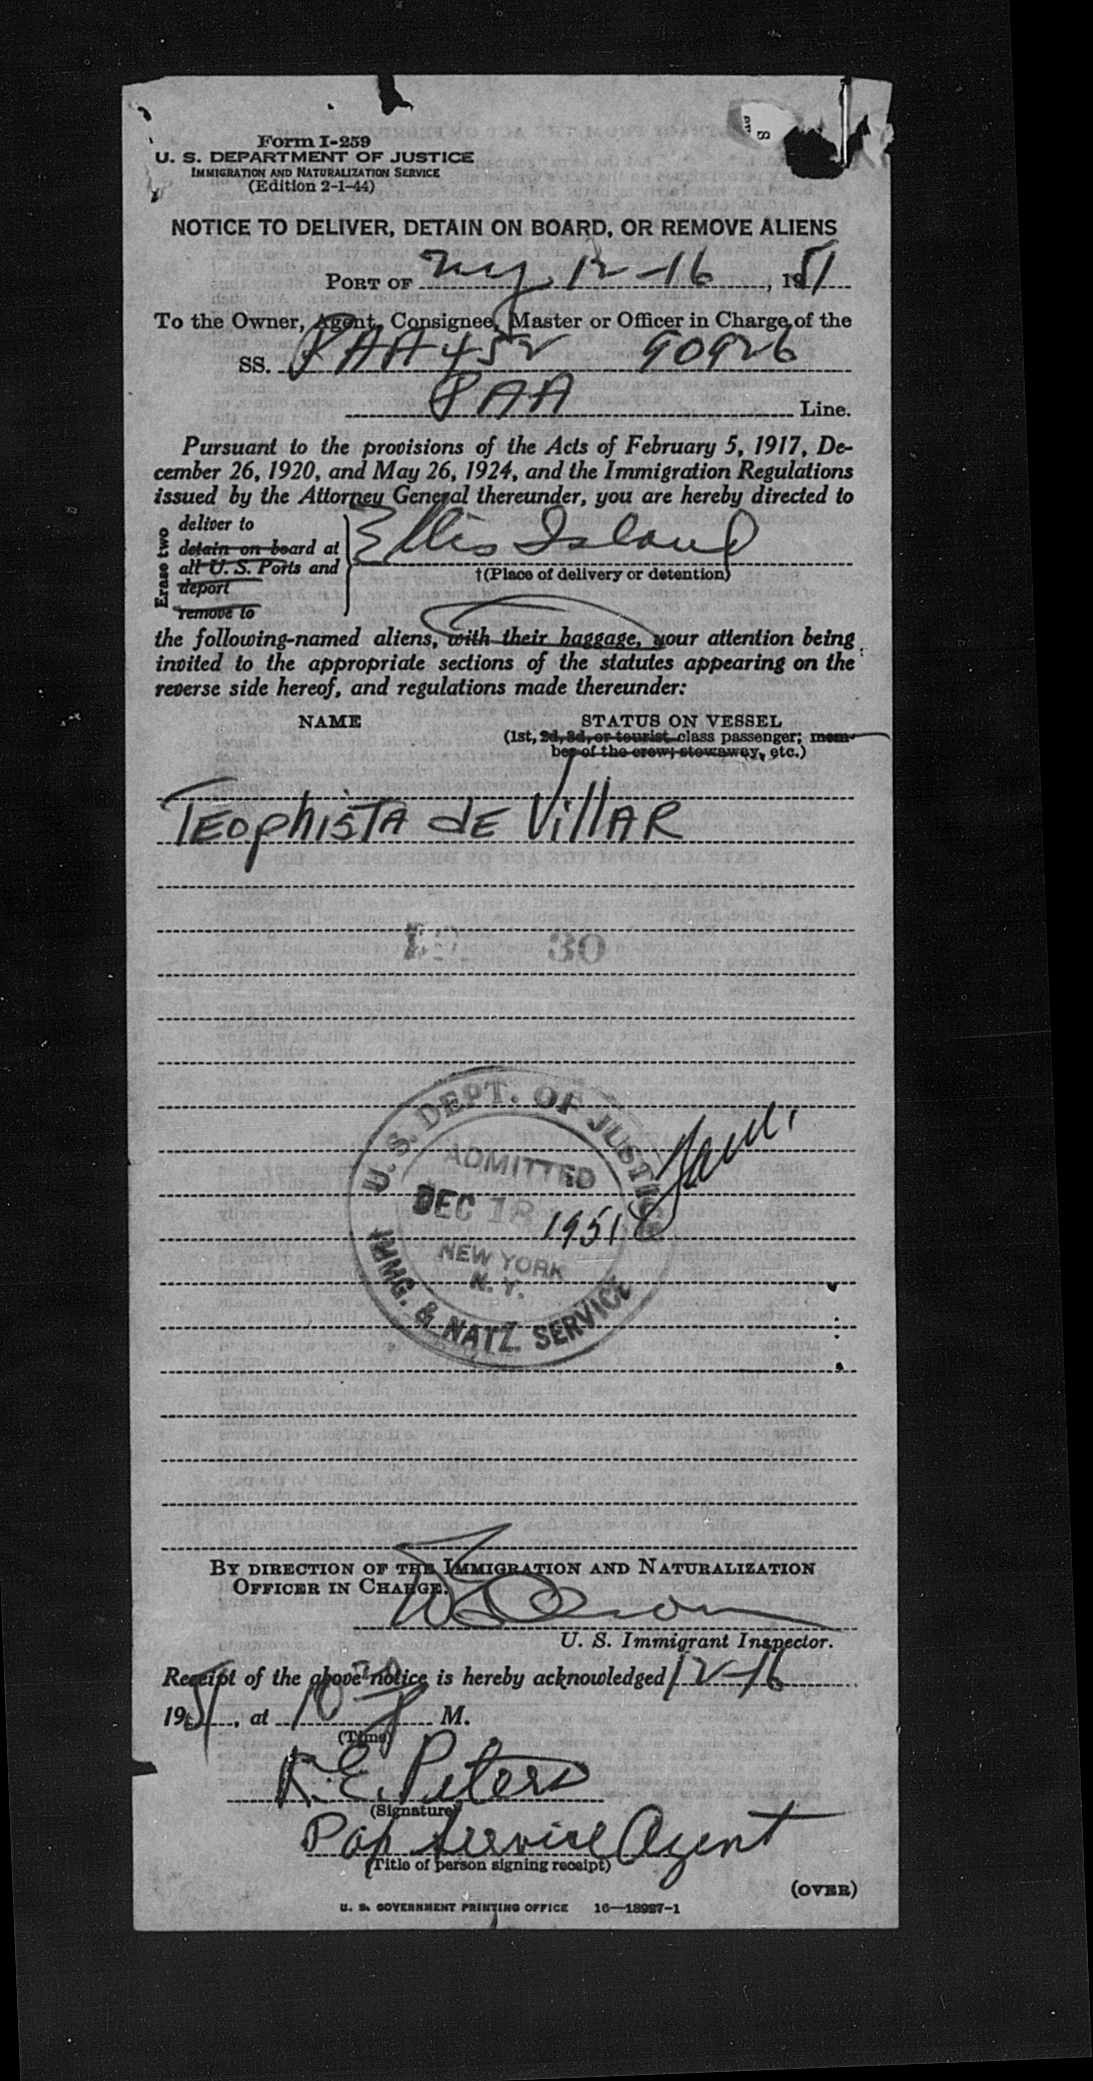 Form I-259
U. S. DEPARTMENT OF JUSTICE
IMMIGRATION AND NATURALIZATION SERVICE
(Edition 2-1-44)
NOTICE TO DELIVER, DETAIN ON BOARD, OR REMOVE ALIENS
PORT OF NY 12-16, 1951
To the Owner, Agent, Consignee, Master or Officer in Charge of the
SS. PAA 452 90926
PAA Line.
Pursuant to the provisions of the Acts of February 5, 1917, De-
cember 26, 1920, and May 26, 1924, and the Immigration Regulations
issued by the Attorney General thereunder, you are hereby directed to
Erase two
deliver to
detain on board at
all U. S. Ports and
deport
remove to
Ellis Island
†(Place of delivery or detention)
the following-named aliens, with their baggage, your attention being
invited to the appropriate sections of the statutes appearing on the
reverse side hereof, and regulations made thereunder:
NAME STATUS ON VESSEL
(1st, 2d, 3d, or tourist class passenger; mem-
ber of the crew; stowaway, etc.)
TEophisTA dE VillAR
30
U. S. DEPT. OF JUSTICE
ADMITTED
DEC 18 1951
NEW YORK
N. Y.
IMMG. & NATZ. SERVICE
BY DIRECTION OF THE IMMIGRATION AND NATURALIZATION
OFFICER IN CHARGE.
U. S. Immigrant Inspector.
Receipt of the above notice is hereby acknowledged 12-16
1951, at 10 P M.
(Time)
R. E. Peters
(Signature)
Pap Service Agent
(Title of person signing receipt)
(OVER)
U. S. GOVERNMENT PRINTING OFFICE 16—18927-1